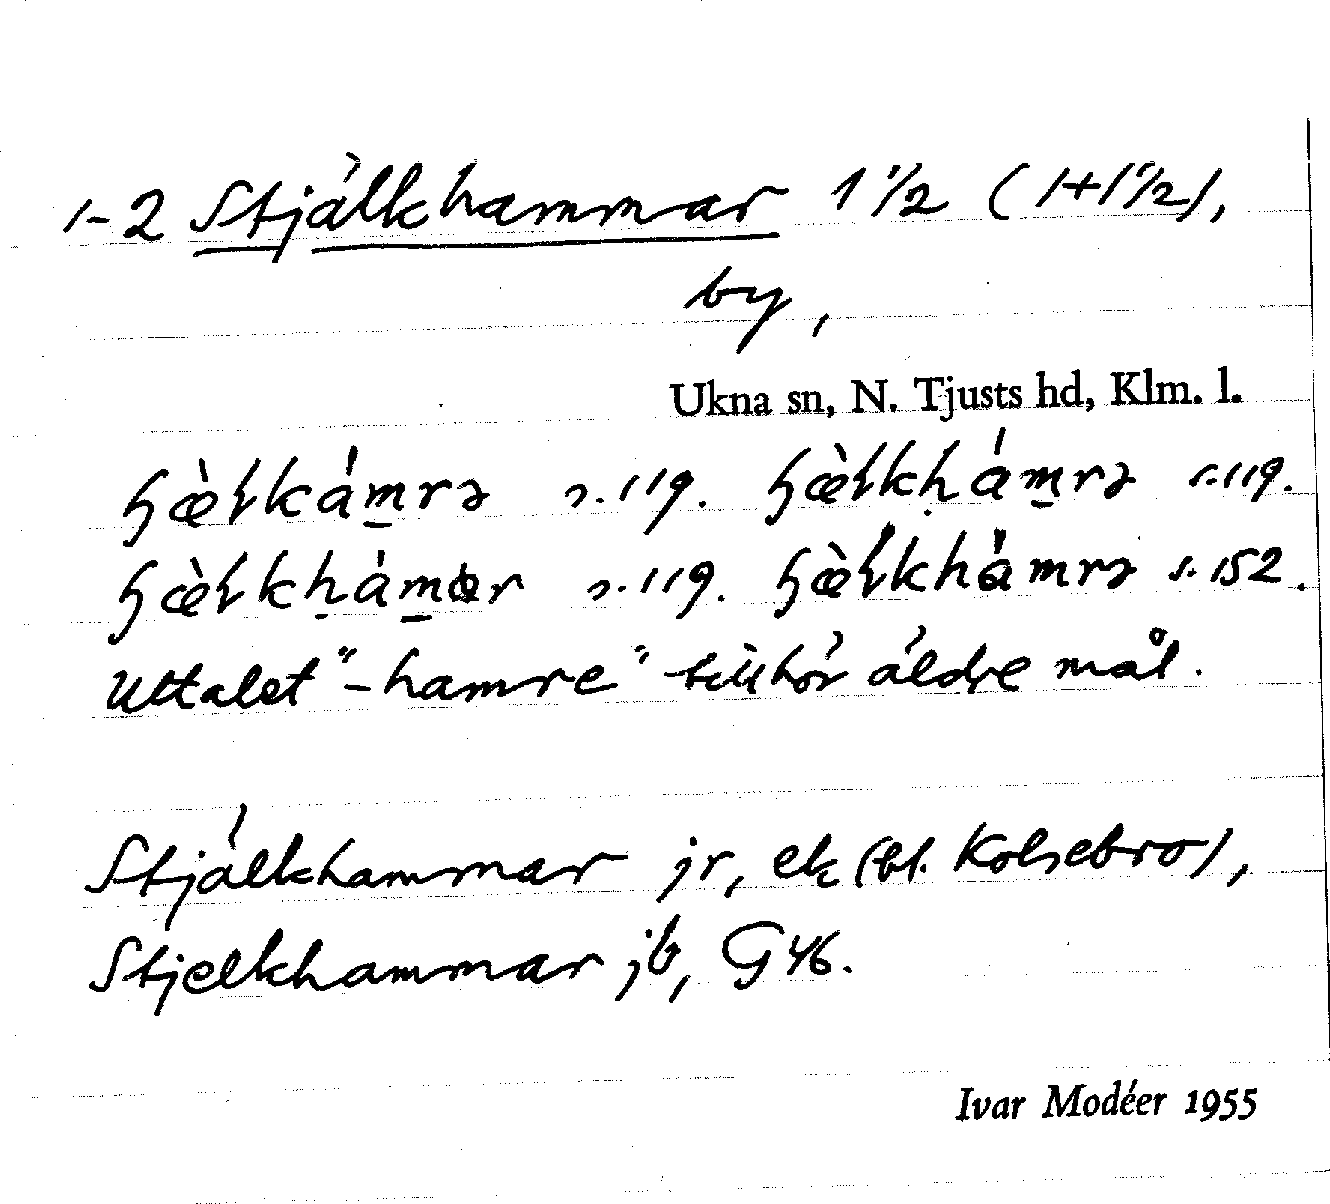 1-2 Stjälkhammar 1 1/2 (1+1 1/2),
by,
Ukna sn, N. Tjusts hd, Klm. l.
s.119. s.119.
s.119. s.152.
Uttalet "-hamre" tillhör äldre mål.
Stjälkhammar jr, ek (bl. Kolsebro),
Stjelkhammar jb, G 46.
Ivar Modéer 1955